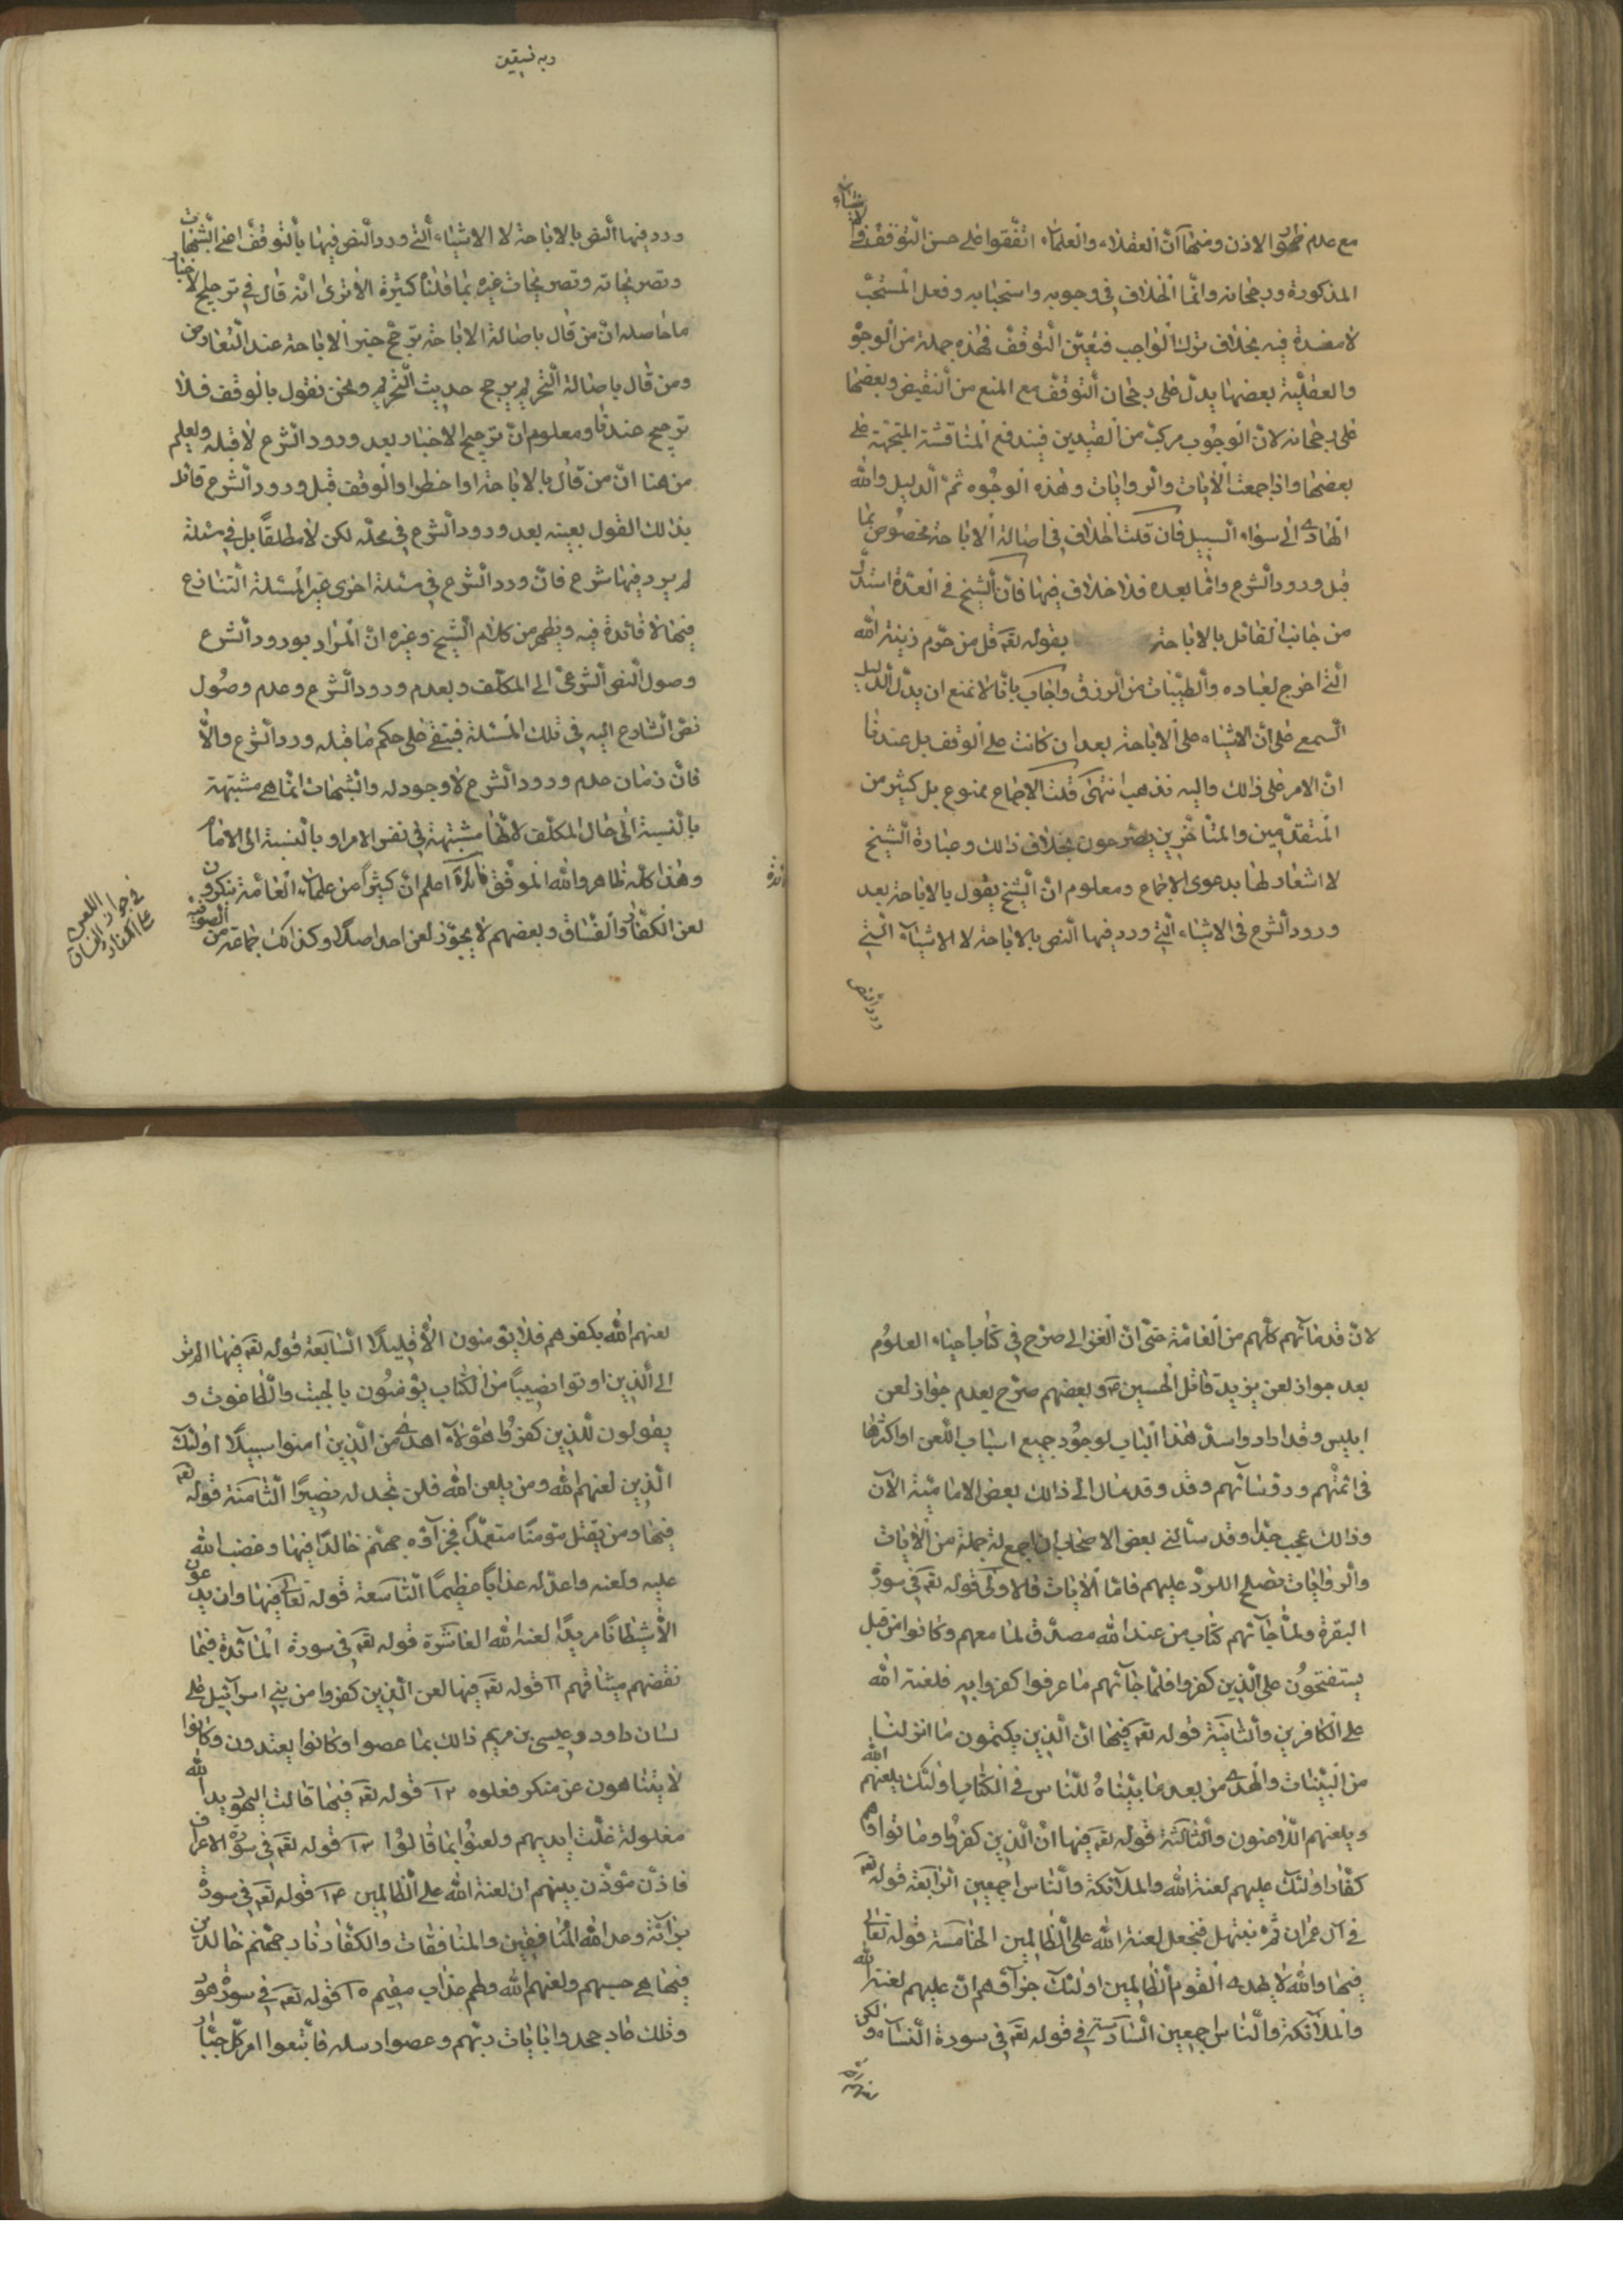 مع عدم ظهور الاذن ومنها انّ العقلاء والعلماء اتّفقوا على حسن التوقّف في الاشياء
المذكورة ورجحانه وانّما الخلاف في وجوبه واستحبابه وفعل المستحبّ
لا مفسدة فيه بخلاف ترك الواجب فتعيّن التوقّف فهذه جملة من الوجوه
والعقليّة بعضها يدلّ على رجحان التوقّف مع المنع من النقيض وبعضها
على رجحانه لانّ الوجوب مركّب من القيدين فيندفع المناقشة المتّجهة على
بعضها واذا جمعت الايات والروايات وهذه الوجوه تمّ الدليل والله
الهادى الى سواء السبيل فان قلت الخلاف في اصالة الاباحة مخصوص بما
قبل ورود الشرع وامّا بعده فلا خلاف فيها فانّ الشيخ في العدّة استدلّ
من جانب القائل بالاباحة بقوله تعم قل من حرّم زينة الله
الّتي اخرج لعباده والطيّبات من الرزق واجاب بانّا لا نمنع ان يدلّ الدليل
السمعي على انّ الاشياء على الاباحة بعد ان كانت على الوقف بل عندنا
انّ الامر على ذلك واليه نذهب انتهى قلت الاجماع ممنوع بل كثير من
المتقدّمين والمتأخّرين يصرحون بخلاف ذلك وعبارة الشيخ
لا اشعار لها بدعوى الاجماع ومعلوم انّ الشيخ يقول بالاباحة بعد
ورود الشرع في الاشياء الّتي ورد فيها النص بالاباحة لا الاشياء الّتي
ورد النص
وبه نستعين
ورد فيها النص بالاباحة لا الاشياء الّتي ورد النص فيها بالتوقّف اعني الشبهات
وتصريحاته وتصريحات غيره بما قلناه كثيرة الا ترى انه قال في ترجيح الاخبار
ما حاصله انّ من قال باصالة الاباحة يرجّح خبر الاباحة عند التعارض
ومن قال باصالة التحريم يرجّح حديث التحريم ونحن نقول بالوقف فلا
ترجيح عندنا ومعلوم انّ ترجيح الاخبار بعد ورود الشرع لا قبله ويعلم
من هنا انّ من قال بالاباحة او الحظر او الوقف قبل ورود الشرع قائل
بذلك القول بعينه بعد ورود الشرع في محلّه لكن لا مطلقاً بل في مسئلة
لم يرد فيها شرع فانّ ورود الشرع في مسئلة اخرى غير المسئلة التنازع
فيها لا فائدة فيه ويظهر من كلام الشيخ وغيره انّ المراد بورود الشرع
وصول النص الشرعيّ الى المكلّف وبعدم ورود الشرع وعدم وصول
نصّ الشارع اليه في تلك المسئلة فيبقى على حكم ما قبله ورود الشرع والّا
فانّ زمان عدم ورود الشرع لا وجود له والشبهات انّما هي مشتبهة
بالنسبة الى حال المكلّف لا انّها مشتبهة في نفس الامر او بالنسبة الى الامام
وهذا كلّه ظاهر والله الموفّق فائدة اعلم انّ كثيراً من علماء العامّة ينكرون
لعن الكفّار والفسّاق وبعضهم لا يجوّز لعن احد اصلاً وكذلك جماعة من الصوفية
في جواز اللعن
على الكفار والفساق
لانّ قدمائهم كلّهم من العامّة حتّى انّ الغزالي صرّح في كتاب احياء العلوم
بعد جواز لعن يزيد قاتل الحسين ع وبعضهم صرّح بعدم جواز لعن
ابليس وقد اراد واسدّ هذا الباب لوجود جميع اسباب اللعن او اكثرها
في ائمّتهم ورؤسائهم وقد وقد مال الى ذلك بعض الاماميّة الآن
وذلك عجيب جدّا وقد سألني بعض الاصحاب ان اجمع له جملة من الايات
والروايات تصلح للردّ عليهم فامّا الايات فالاولى قوله تعم في سورة
البقرة ولمّا جائهم كتاب من عند الله مصدّق لما معهم وكانوا من قبل
يستفتحون على الّذين كفروا فلمّا جائهم ما عرفوا كفروا به فلعنة الله
على الكافرين والثانية قوله تعم فيها انّ الّذين يكتمون ما انزلنا
من البيّنات والهدى من بعد ما بيّنّاه للنّاس في الكتاب اولئك يلعنهم الله
ويلعنهم اللاعنون والثالثة قوله تعم فيها انّ الّذين كفروا وماتوا وهم
كفّار اولئك عليهم لعنة الله والملائكة والناس اجمعين الرابعة قوله تعم
في آل عمران ثمّ نبتهل فنجعل لعنة الله على الظالمين الخامسة قوله تعالى
فيها والله لا يهدى القوم الظالمين اولئك جزاؤهم انّ عليهم لعنة الله
والملائكة والناس اجمعين السادسة في قوله تعم في سورة النساء ولكن
لعنهم الله
لعنهم الله بكفرهم فلا يؤمنون الّا قليلاً السابعة قوله تعم فيها الم تر
الى الّذين اوتوا نصيباً من الكتاب يؤمنون بالجبت والطاغوت و
يقولون للّذين كفروا هؤلاء اهدى من الّذين امنوا سبيلاً اولئك
الّذين لعنهم الله ومن يلعن الله فلن تجد له نصيرًا الثامنة قوله تعم
فيها ومن يقتل مؤمنًا متعمّدًا فجزاؤه جهنّم خالدًا فيها وغضب الله
عليه ولعنه واعدّ له عذاباً عظيمًا التاسعة قوله تعالى فيها وان يدعون
الّا شيطانًا مريدًا لعنه الله العاشرة قوله تعم في سورة المائدة فبما
نقضهم ميثاقهم ١١ قوله تعم فيها لعن الّذين كفروا من بني اسرائيل على
لسان داود وعيسى بن مريم ذلك بما عصوا وكانوا يعتدون وكانوا
لا يتناهون عن منكر فعلوه ١٢ قوله تعم فيها قالت اليهود يد الله
مغلولة غلّت ايديهم ولعنوا بما قالوا ١٣ قوله تعم في سورة الاعراف
فاذّن مؤذّن بينهم ان لعنة الله على الظالمين ١٤ قوله تعم في سورة
برائة وعد الله المنافقين والمنافقات والكفّار نار جهنّم خالدين
فيها هي حسبهم ولعنهم الله ولهم عذاب مقيم ١٥ قوله تعم في سورة هود
وتلك عاد جحدوا بايات ربّهم وعصوا رسله فاتّبعوا امر كلّ جبّار